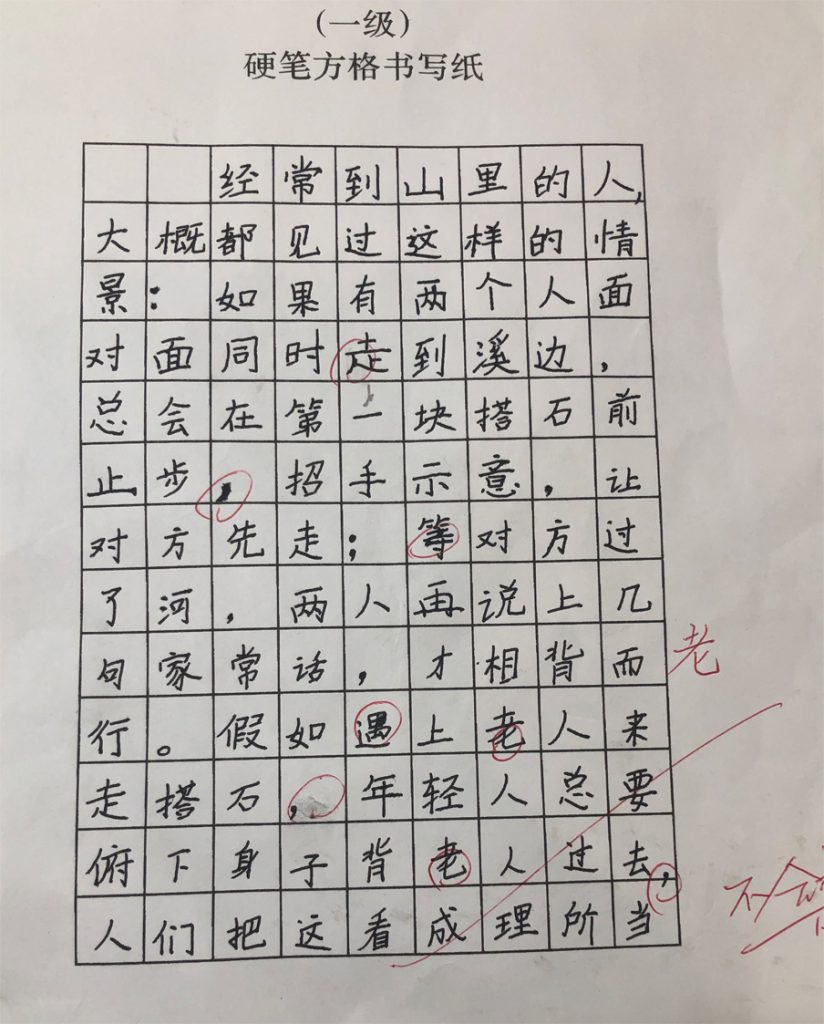 （一级）
硬笔方格书写纸
经常到山里的人，
大概都见过这样的情
景：如果有两个人面
对面同时走到溪边，
总会在第一块搭石前
止步，招手示意，让
对方先走；等对方过
了河，两人再说上几
句家常话，才相背而
老
行。假如遇上老人来
走搭石，年轻人总要
俯下身子背老人过去，
人们把这看成理所当